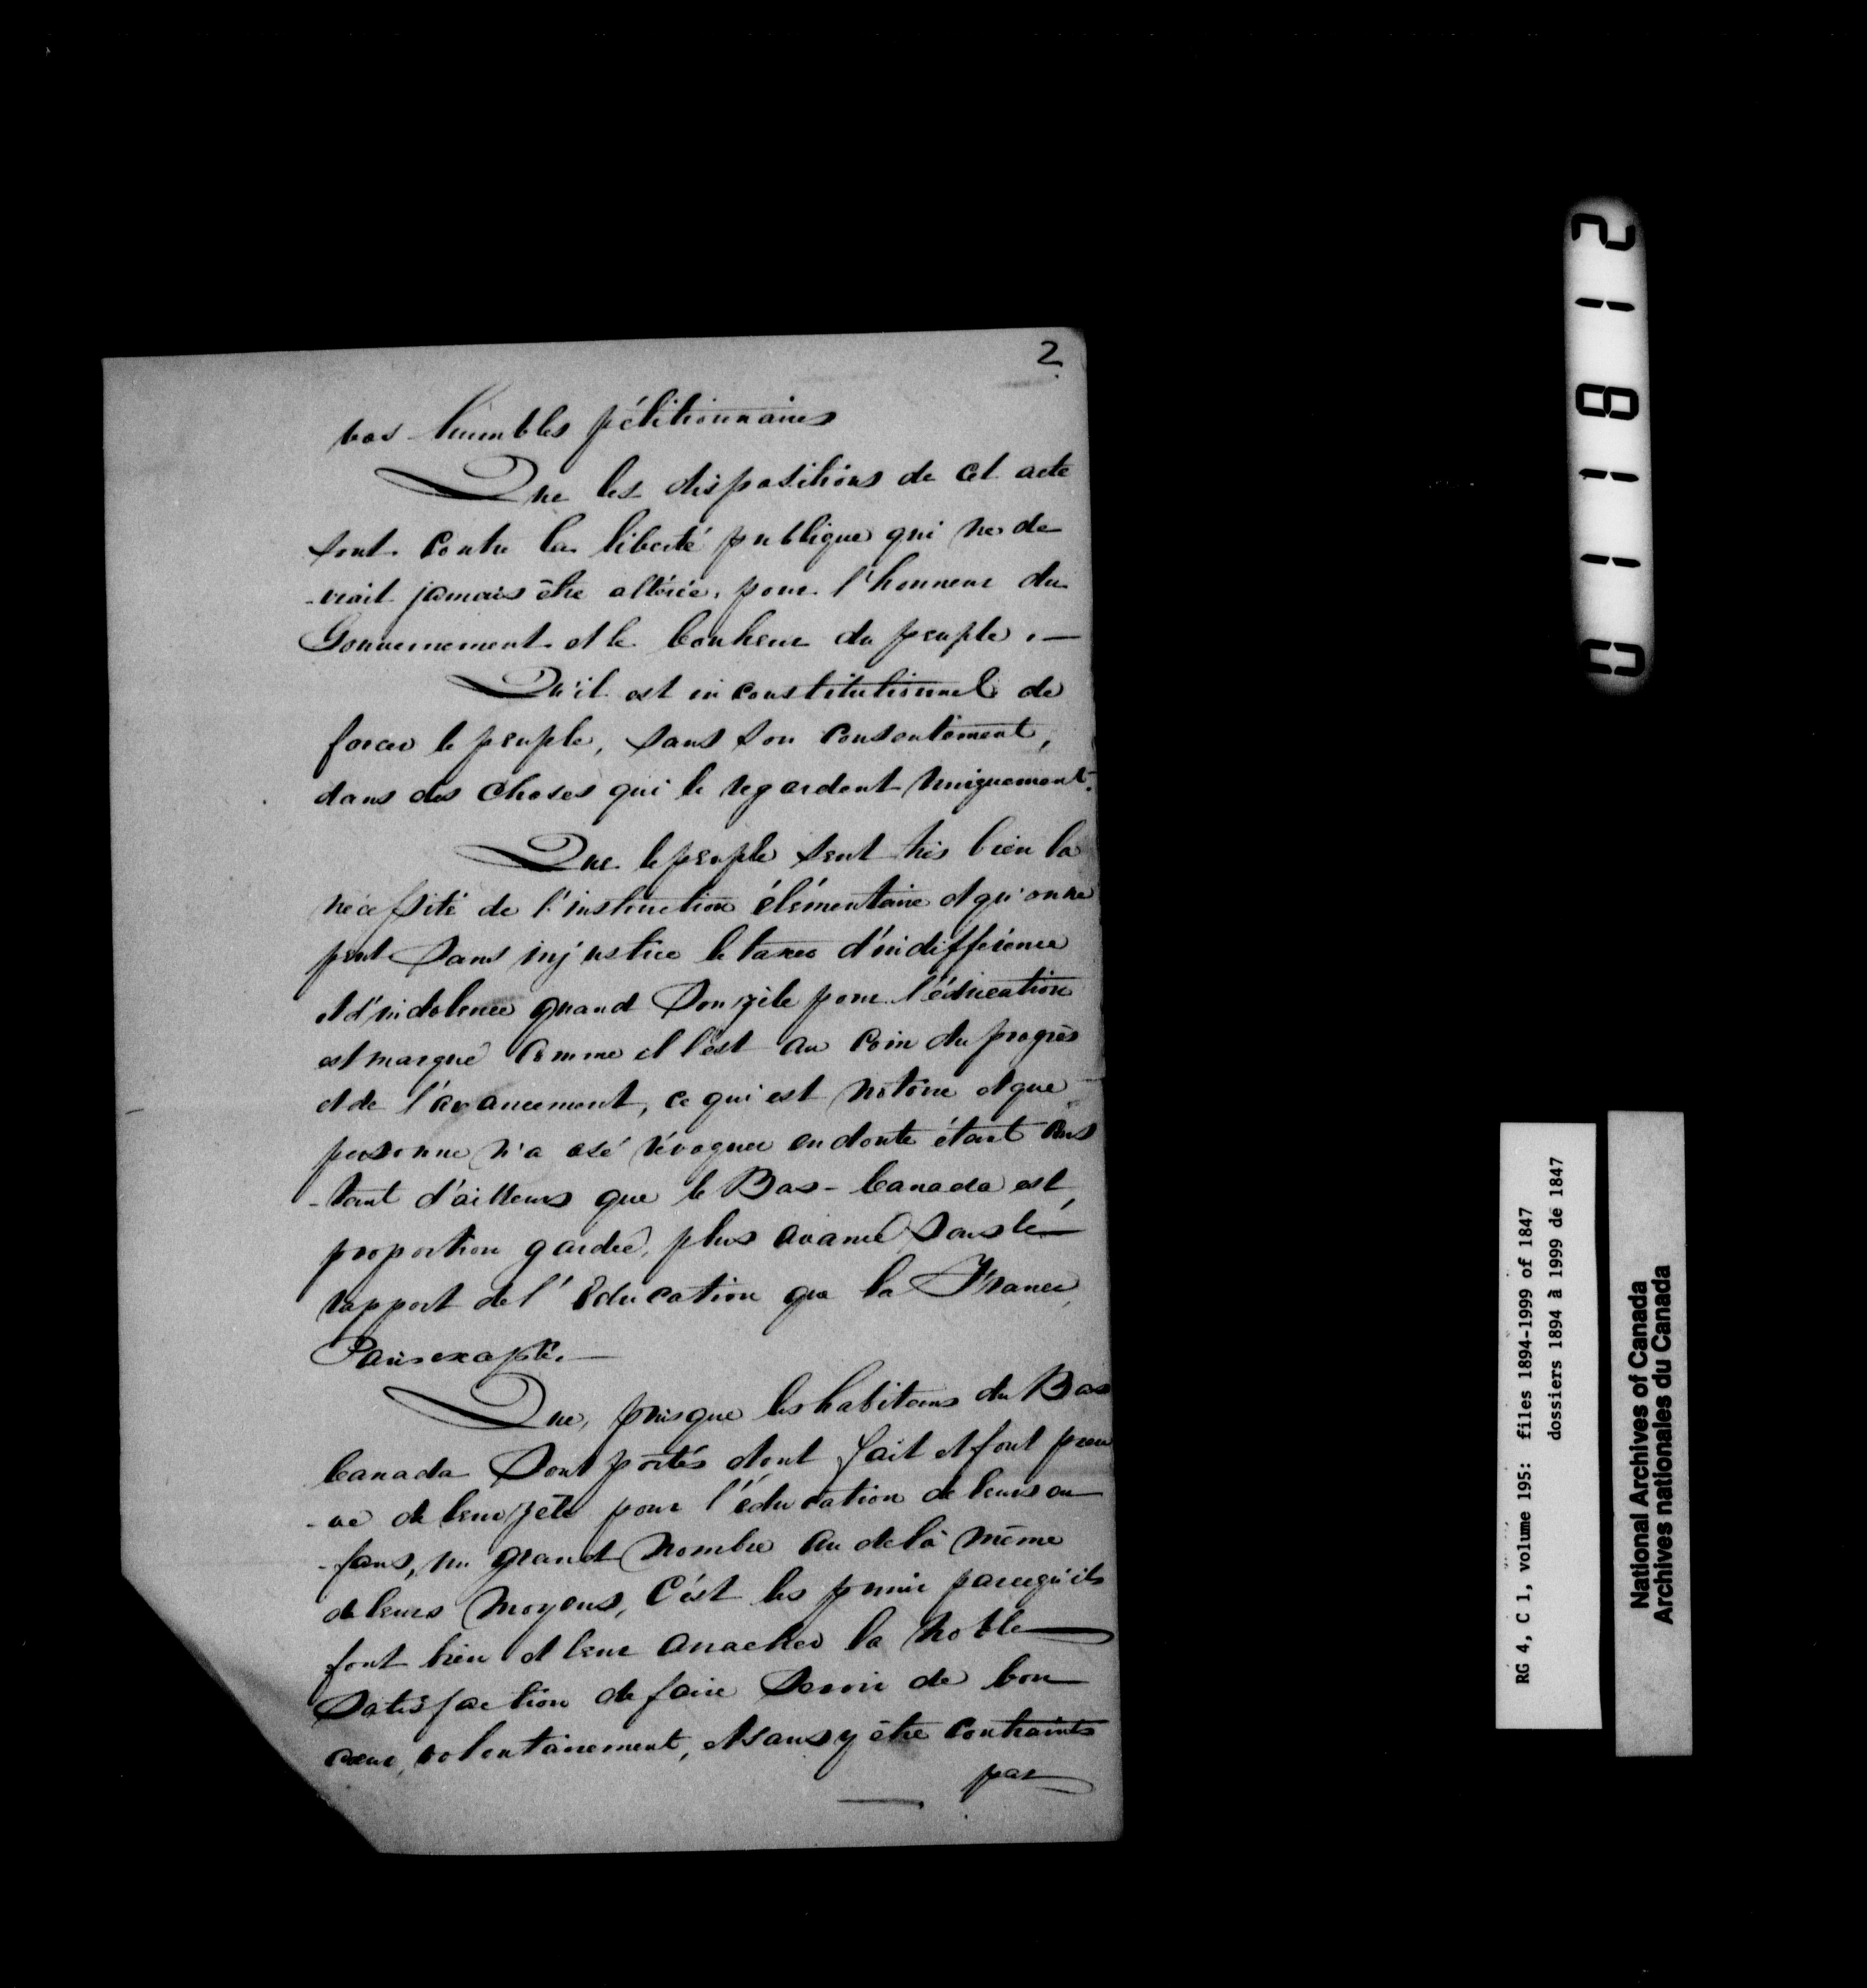 2
vos humbles pétitionnaires
Que les dispositions de cet acte
sont contre la liberté publique qui ne de
-vrait jamais être altérée, pour l'honneur du
Gouvernement et le bonheur du peuple. —
Qu'il est inconstitutionnel de
forcer le peuple, sans son consentement,
dans des choses qui le regardent uniquement.
Que le peuple sent très bien la
nécessité de l'instruction élémentaire et qu'on ne
peut sans injustice le taxer d'indifférence
et d'indolence quand son zèle pour l'éducation
est marqué comme il l'est au coin du progrès
et de l'avancement, ce qui est notoire et que
personne n'a osé révoquer en doute étant cons
-tant d'ailleurs que le Bas-Canada est,
proportion gardée, plus avancé sous le
rapport de l'Education que la France,
Paris excepté. —
Que, puisque les habitans du Bas
Canada sont portés et ont fait et font preu
-ve de leur zèle pour l'éducation de leurs en
-fans, un grand nombre au delà même
de leurs moyens, C'est les punir parcequ'ils
font bien et leur arracher la noble
satisfaction de faire de bon
cœur, volontairement, et sans y être contraints
par
0 1 1 8 1 2
RG 4, C 1, volume 195: files 1894-1999 of 1847
dossiers 1894 à 1999 de 1847
National Archives of Canada
Archives nationales du Canada